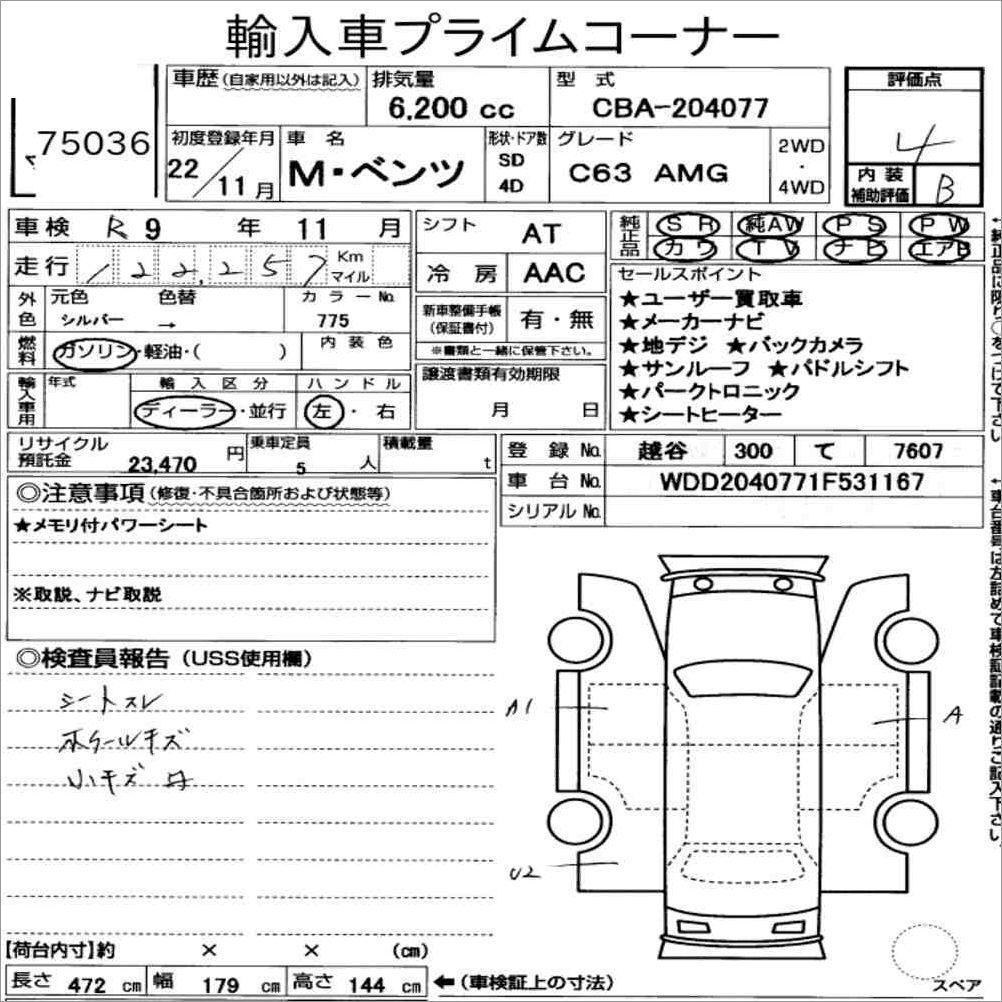 輸入車プライムコーナー
75036
車歴(自家用以外は記入) 排気量 6,200 cc 型式 CBA-204077 評価点 4
初度登録年月 22/11月 車名 M・ベンツ 形状・ドア数 SD 4D グレード C63 AMG 2WD・4WD 内装補助評価 B
車検 R9年11月 シフト AT 純正品 SR 純AW PS PW
走行 122,257 Km マイル 冷房 AAC カワ TV ナビ エアB
外色 元色 シルバー 色替 → カラーNo. 775 新車整備手帳(保証書付) 有・無
※書類と一緒に保管下さい。
燃料 ガソリン・軽油・( ) 内装色
輸入車用 年式 輸入区分 ディーラー・並行 ハンドル 左・右
譲渡書類有効期限 月 日
セールスポイント
★ユーザー買取車
★メーカーナビ
★地デジ ★バックカメラ
★サンルーフ ★パドルシフト
★パークトロニック
★シートヒーター
リサイクル預託金 23,470円 乗車定員 5人 積載量 t
登録No. 越谷 300 て 7607
車台No. WDD2040771F531167
シリアルNo.
◎注意事項(修復・不具合箇所および状態等)
★メモリ付パワーシート
※取説、ナビ取説
◎検査員報告(USS使用欄)
シートスレ
ホイールキズ
小キズ
A1
A
U2
【荷台内寸】約 × × (cm)
長さ 472 cm 幅 179 cm 高さ 144 cm ←(車検証上の寸法)
スペア
←純正品に限り○をつけて下さい。
←車台番号は左詰めで車検証記載の通りご記入下さい。